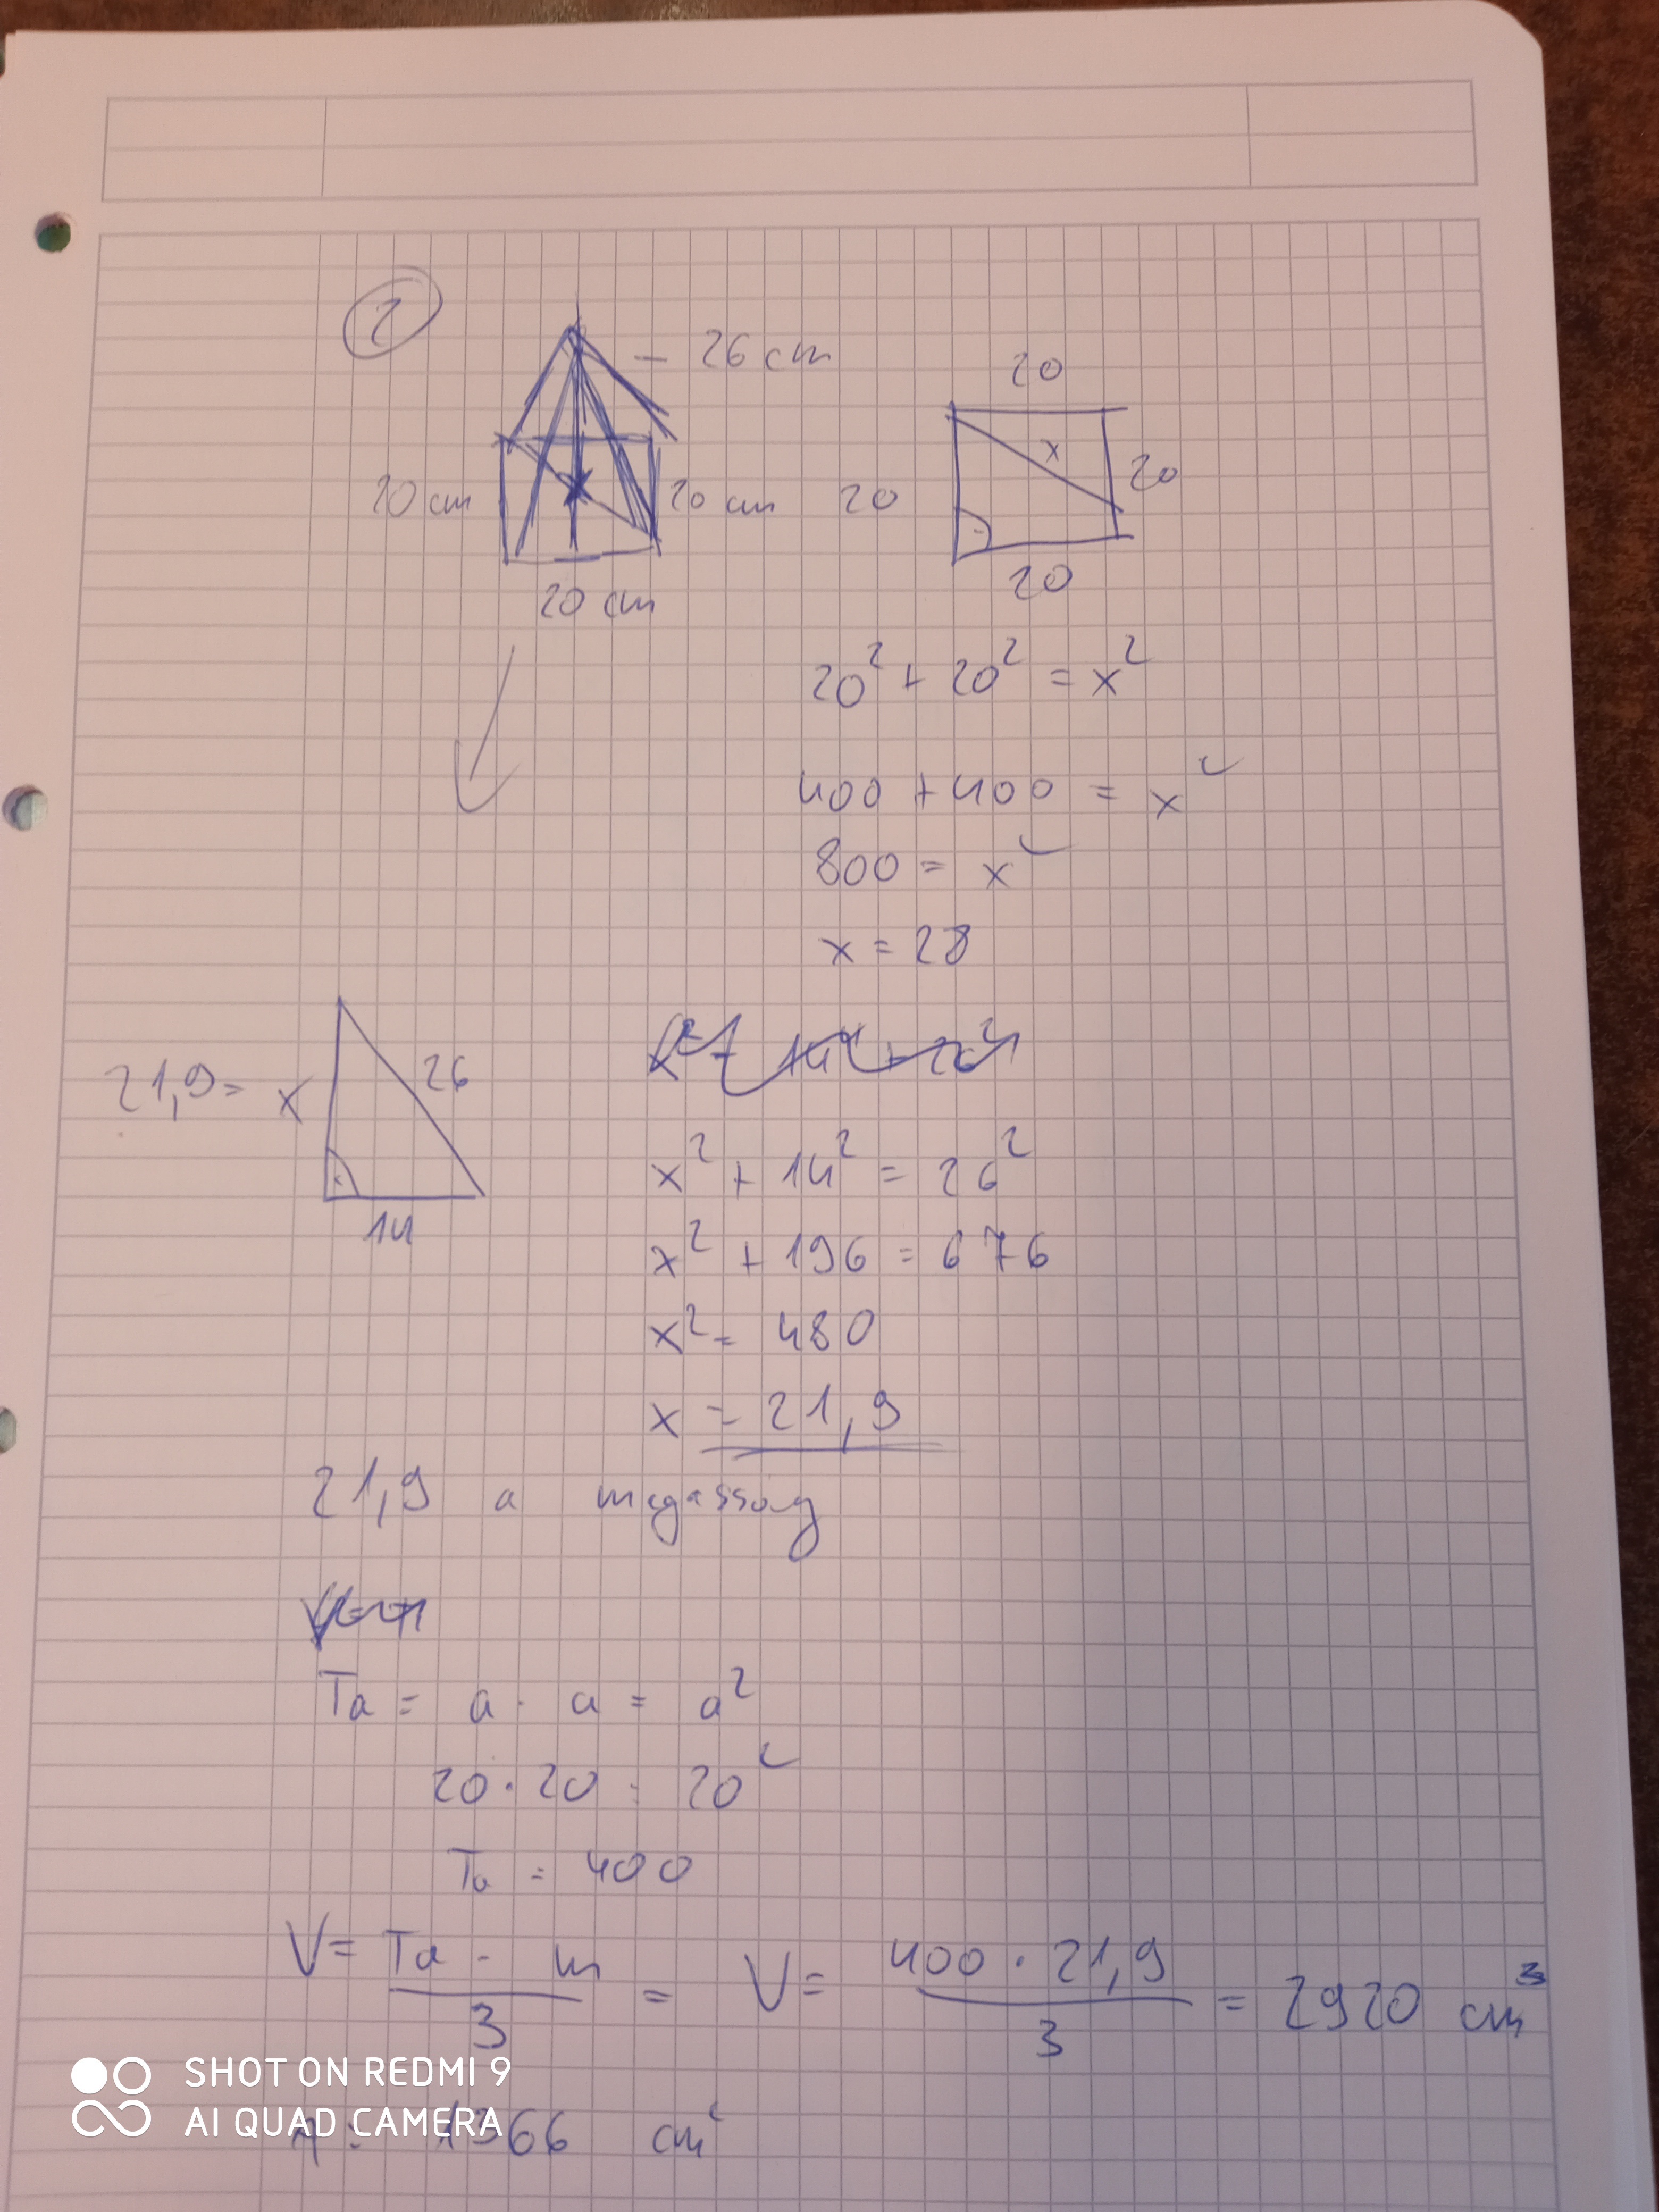 2
26 cm
20 cm
20 cm
20 cm
20
x
20
20
20
20² + 20² = x²
400 + 400 = x²
800 = x²
x = 28
21,9 = x
26
14
x² + 14² = 26²
x² + 196 = 676
x² = 480
x = 21,9
21,9 a magasság
Ta = a · a = a²
20 · 20 = 20²
Ta = 400
V = Ta · m / 3 = V = 400 · 21,9 / 3 = 2920 cm³
SHOT ON REDMI 9
AI QUAD CAMERA
A = 1366 cm²